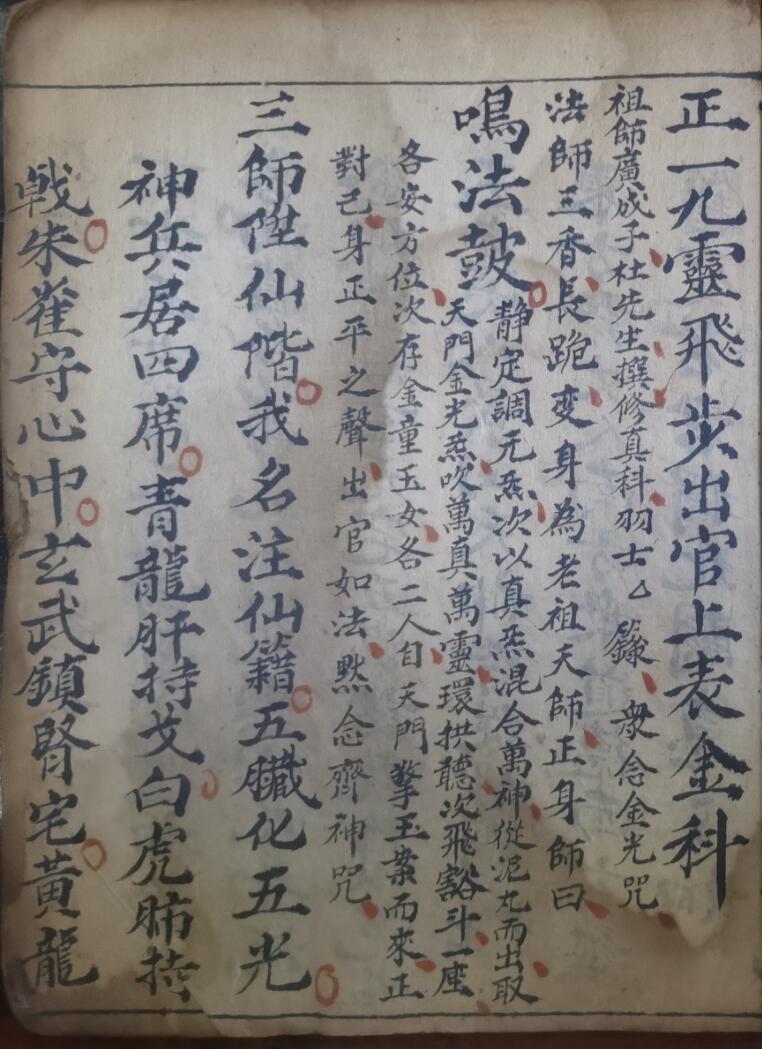 正一九靈飛步出官上表金科
祖師廣成子杜先生撰修真科羽士厶籙 衆念金光咒
法師三香長跪变身為老祖天師正身師曰
鳴法鼓
静定調元炁次以真炁混合萬神從泥丸而出取
天門金光炁吹萬真萬靈環拱聽次飛豁斗一座
各安方位次存金童玉女各二人自天門擎玉案而來正
對己身正平之聲出官如法默念齊神咒
三師陞仙階我名注仙籍五臟化五光
神兵居四席青龍肝持戈白虎肺持
戟朱雀守心中玄武鎮腎宅黃龍